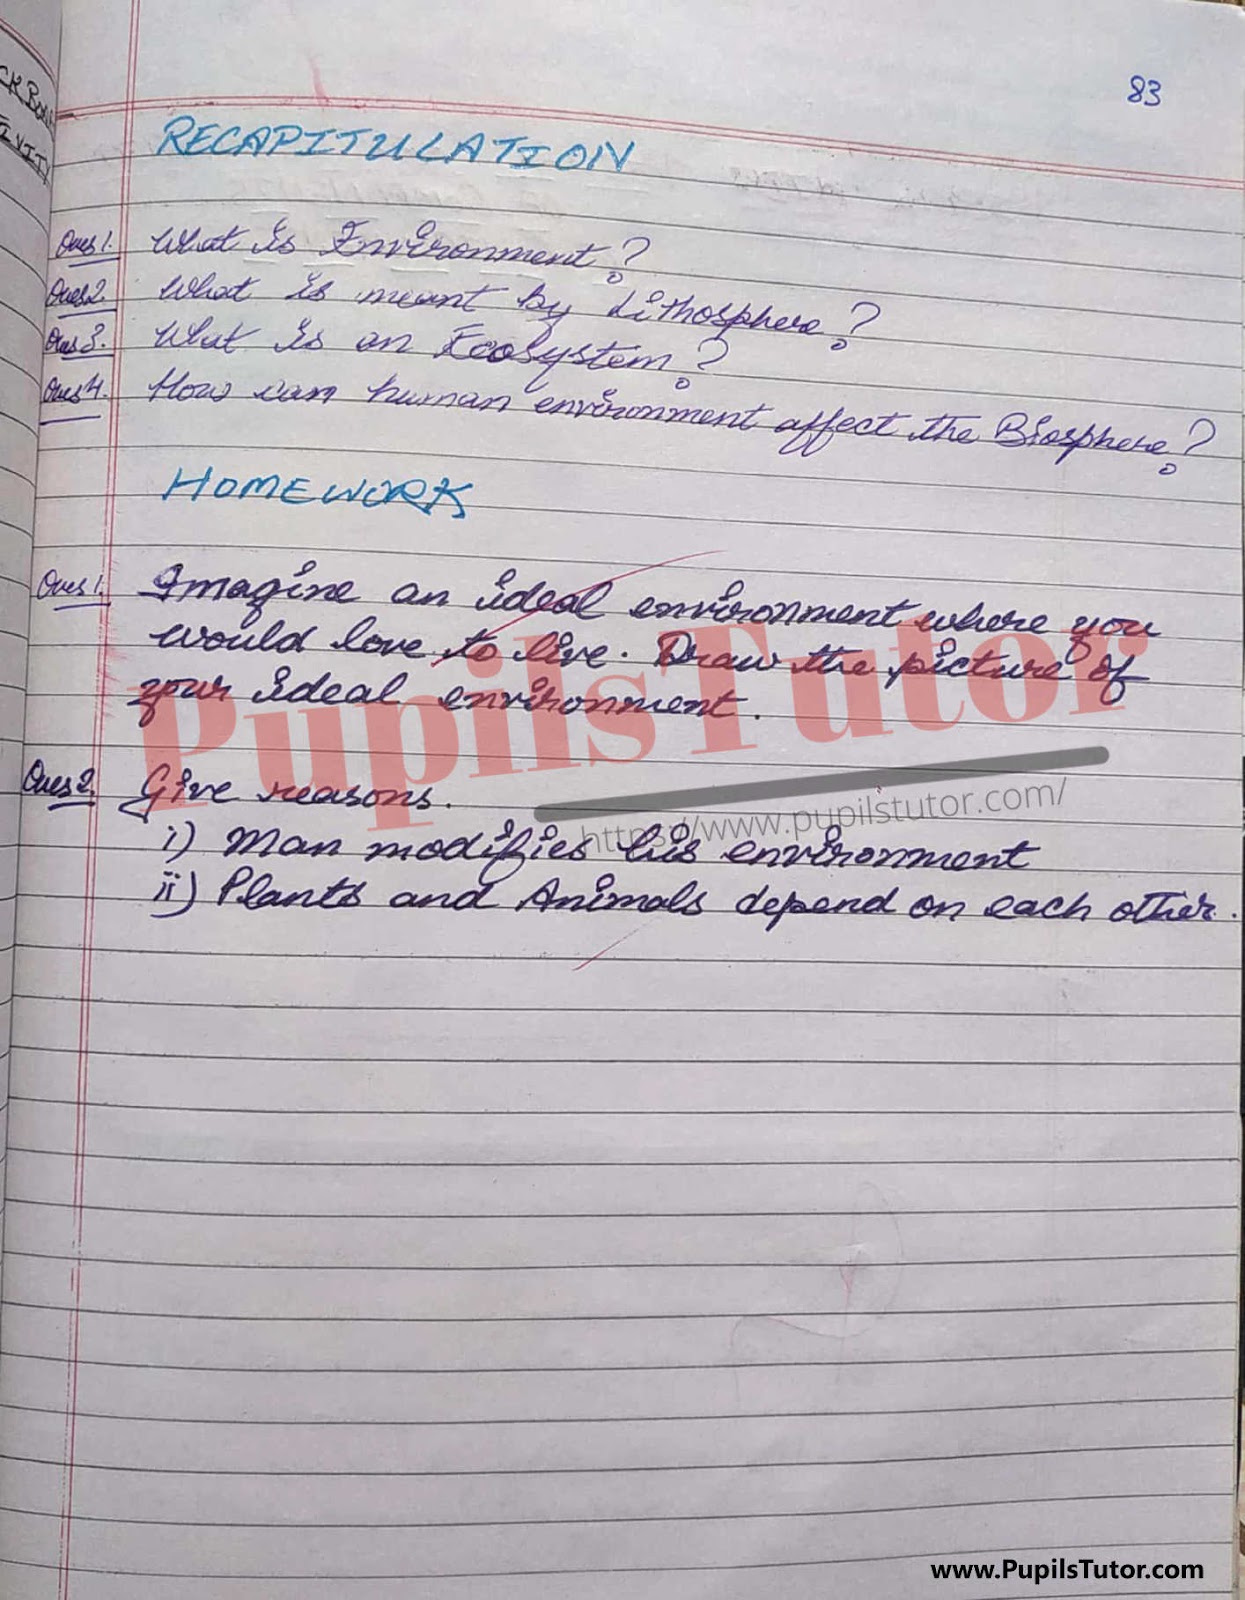 83
RECAPITULATION
Ques1. What is Environment?
Ques2. What is meant by Lithosphere?
Ques3. What is an Ecosystem?
Ques4. How can human environment affect the Biosphere?
HOMEWORK
Ques1. Imagine an ideal environment where you
would love to live. Draw the picture of
your ideal environment.
PupilsTutor
https://www.pupilstutor.com/
Ques2. Give reasons.
i) Man modifies his environment
ii) Plants and Animals depend on each other.
www.PupilsTutor.com